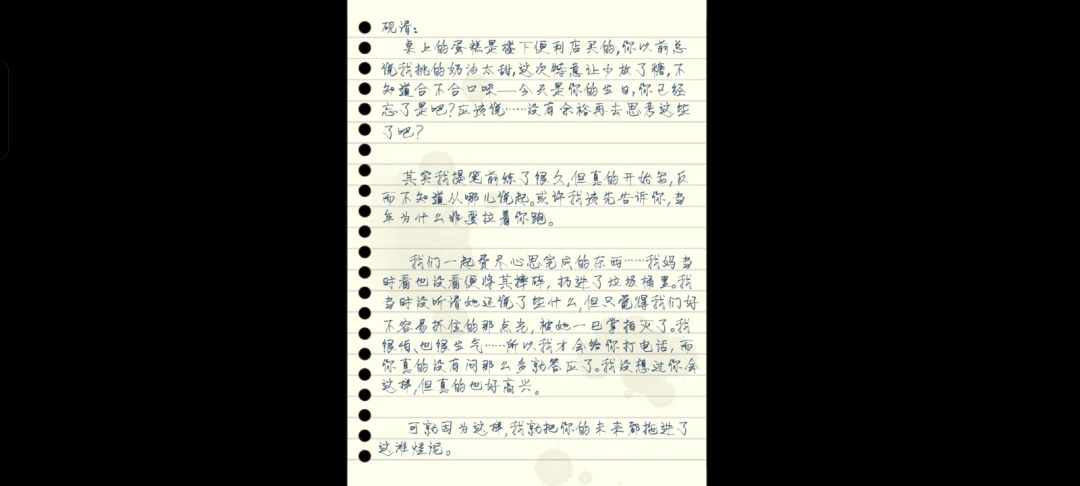 砚清：
桌上的蛋糕是楼下便利店买的,你以前总
说我挑的奶油太甜,这次特意让少放了糖,不
知道合不合口味——今天是你的生日,你已经
忘了是吧?应该说……没有余裕再去思考这些
了吧?
其实我提笔前练了很久,但真的开始写,反
而不知道从哪儿说起。或许我该先告诉你,当
年为什么非要拉着你跑。
我们一起费尽心思完成的东西……我妈当
时看也没看便将其摔碎，扔进了垃圾桶里。我
当时没听清她还说了些什么,但只觉得我们好
不容易抓住的那点光，被她一巴掌拍灭了。我
很怕、也很生气……所以我才会给你打电话，而
你真的没有问那么多就答应了。我没想过你会
这样,但真的也好高兴。
可就因为这样,我就把你的未来都拖进了
这滩烂泥。